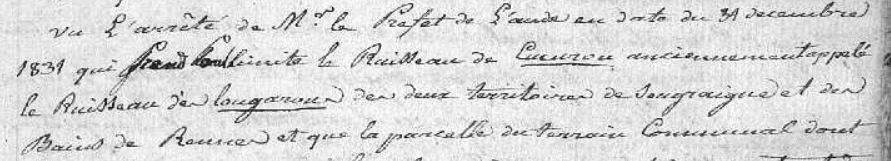 vu L'arrêté de Mr. le Prefet de L'aude en date du 31 decembre
1831 qui prend pour limite le Ruisseau de Cucurou anciennement appelé
le Ruisseau des Lougarous des deux territoires de Sougraigne et des
Bains de Rennes et que la parcelle du terrain Communal dont